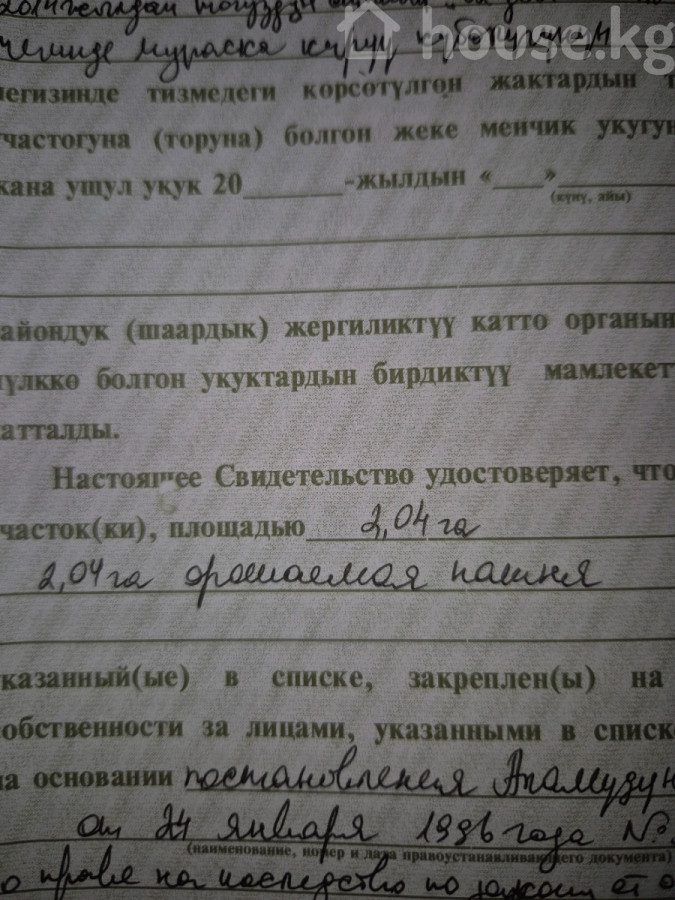 house.kg
чегинде мураска кирүү күбөлүгүнүн
негизинде тизмедеги көрсөтүлгөн жактардын т
участогуна (торуна) болгон жеке менчик укугун
жана ушул укук 20______-жылдын «___»
(күнү, айы)
айондук (шаардык) жергиликтүү катто органын
үлккө болгон укуктардын бирдиктүү мамлекетт
атталды.
Настоящее Свидетельство удостоверяет, что
часток(ки), площадью 2,04 га
2,04 га орошаемая пашня
казанный(ые) в списке, закреплен(ы) на
обственности за лицами, указанными в списке
на основании постановления Аламудун
от 24 января 1996 года №
(наименование, номер и дата правоустанавливающего документа)
о праве на наследство по закону от